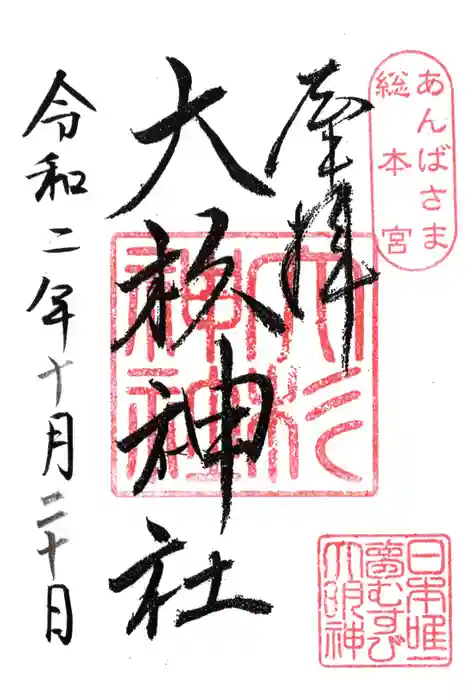 あんばさま
総本宮
奉拝
大杦神社
大杉
神社
令和二年十月二十日
日本唯一
夢むすび
大明神